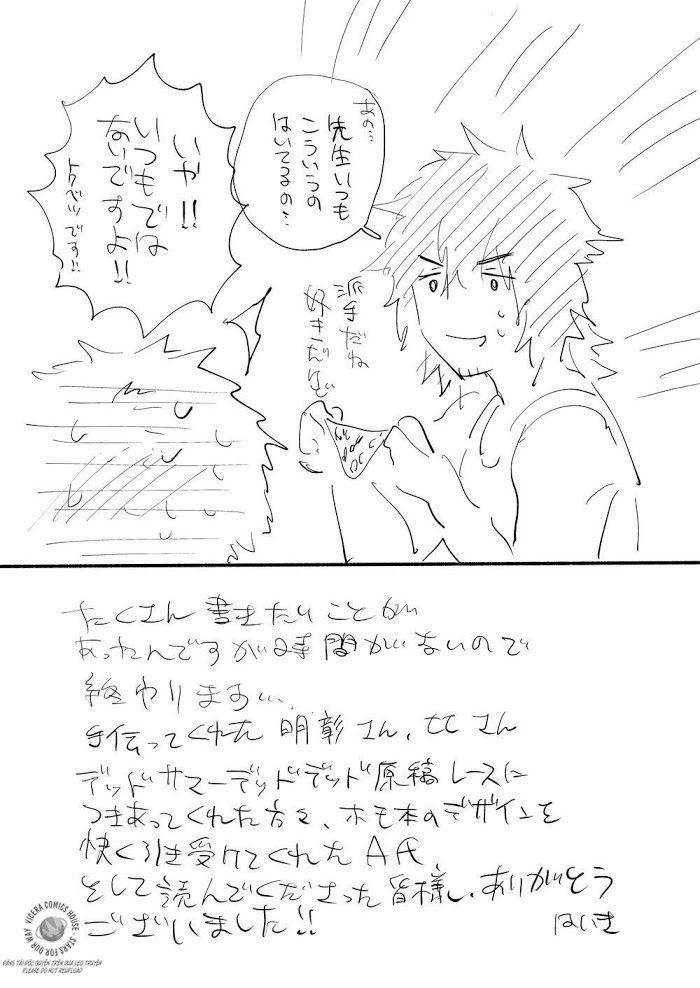 あの…
先生いつも
こういうの
はいてるの…
いや!!
いつもでは
ないですよ!!
トクベツです!!
派手だね
好きだぜ
たくさん書きたいことが
あったんですが時間がないので
終わります…
手伝ってくれた明彰さん、ヒヒさん
デッドサマーデッドデッド原稿レースに
つきあってくれた方々、ホモ本のデザインを
快く引き受けてくれたA氏
そして読んでくださった皆様、ありがとう
ございました!!
はいき
VICERA COMICS HOUSE - STARS FOR OUR WAY
ĐĂNG TẢI ĐỘC QUYỀN TRÊN DUA LEO TRUYỆN
PLEASE DO NOT REUPLOAD